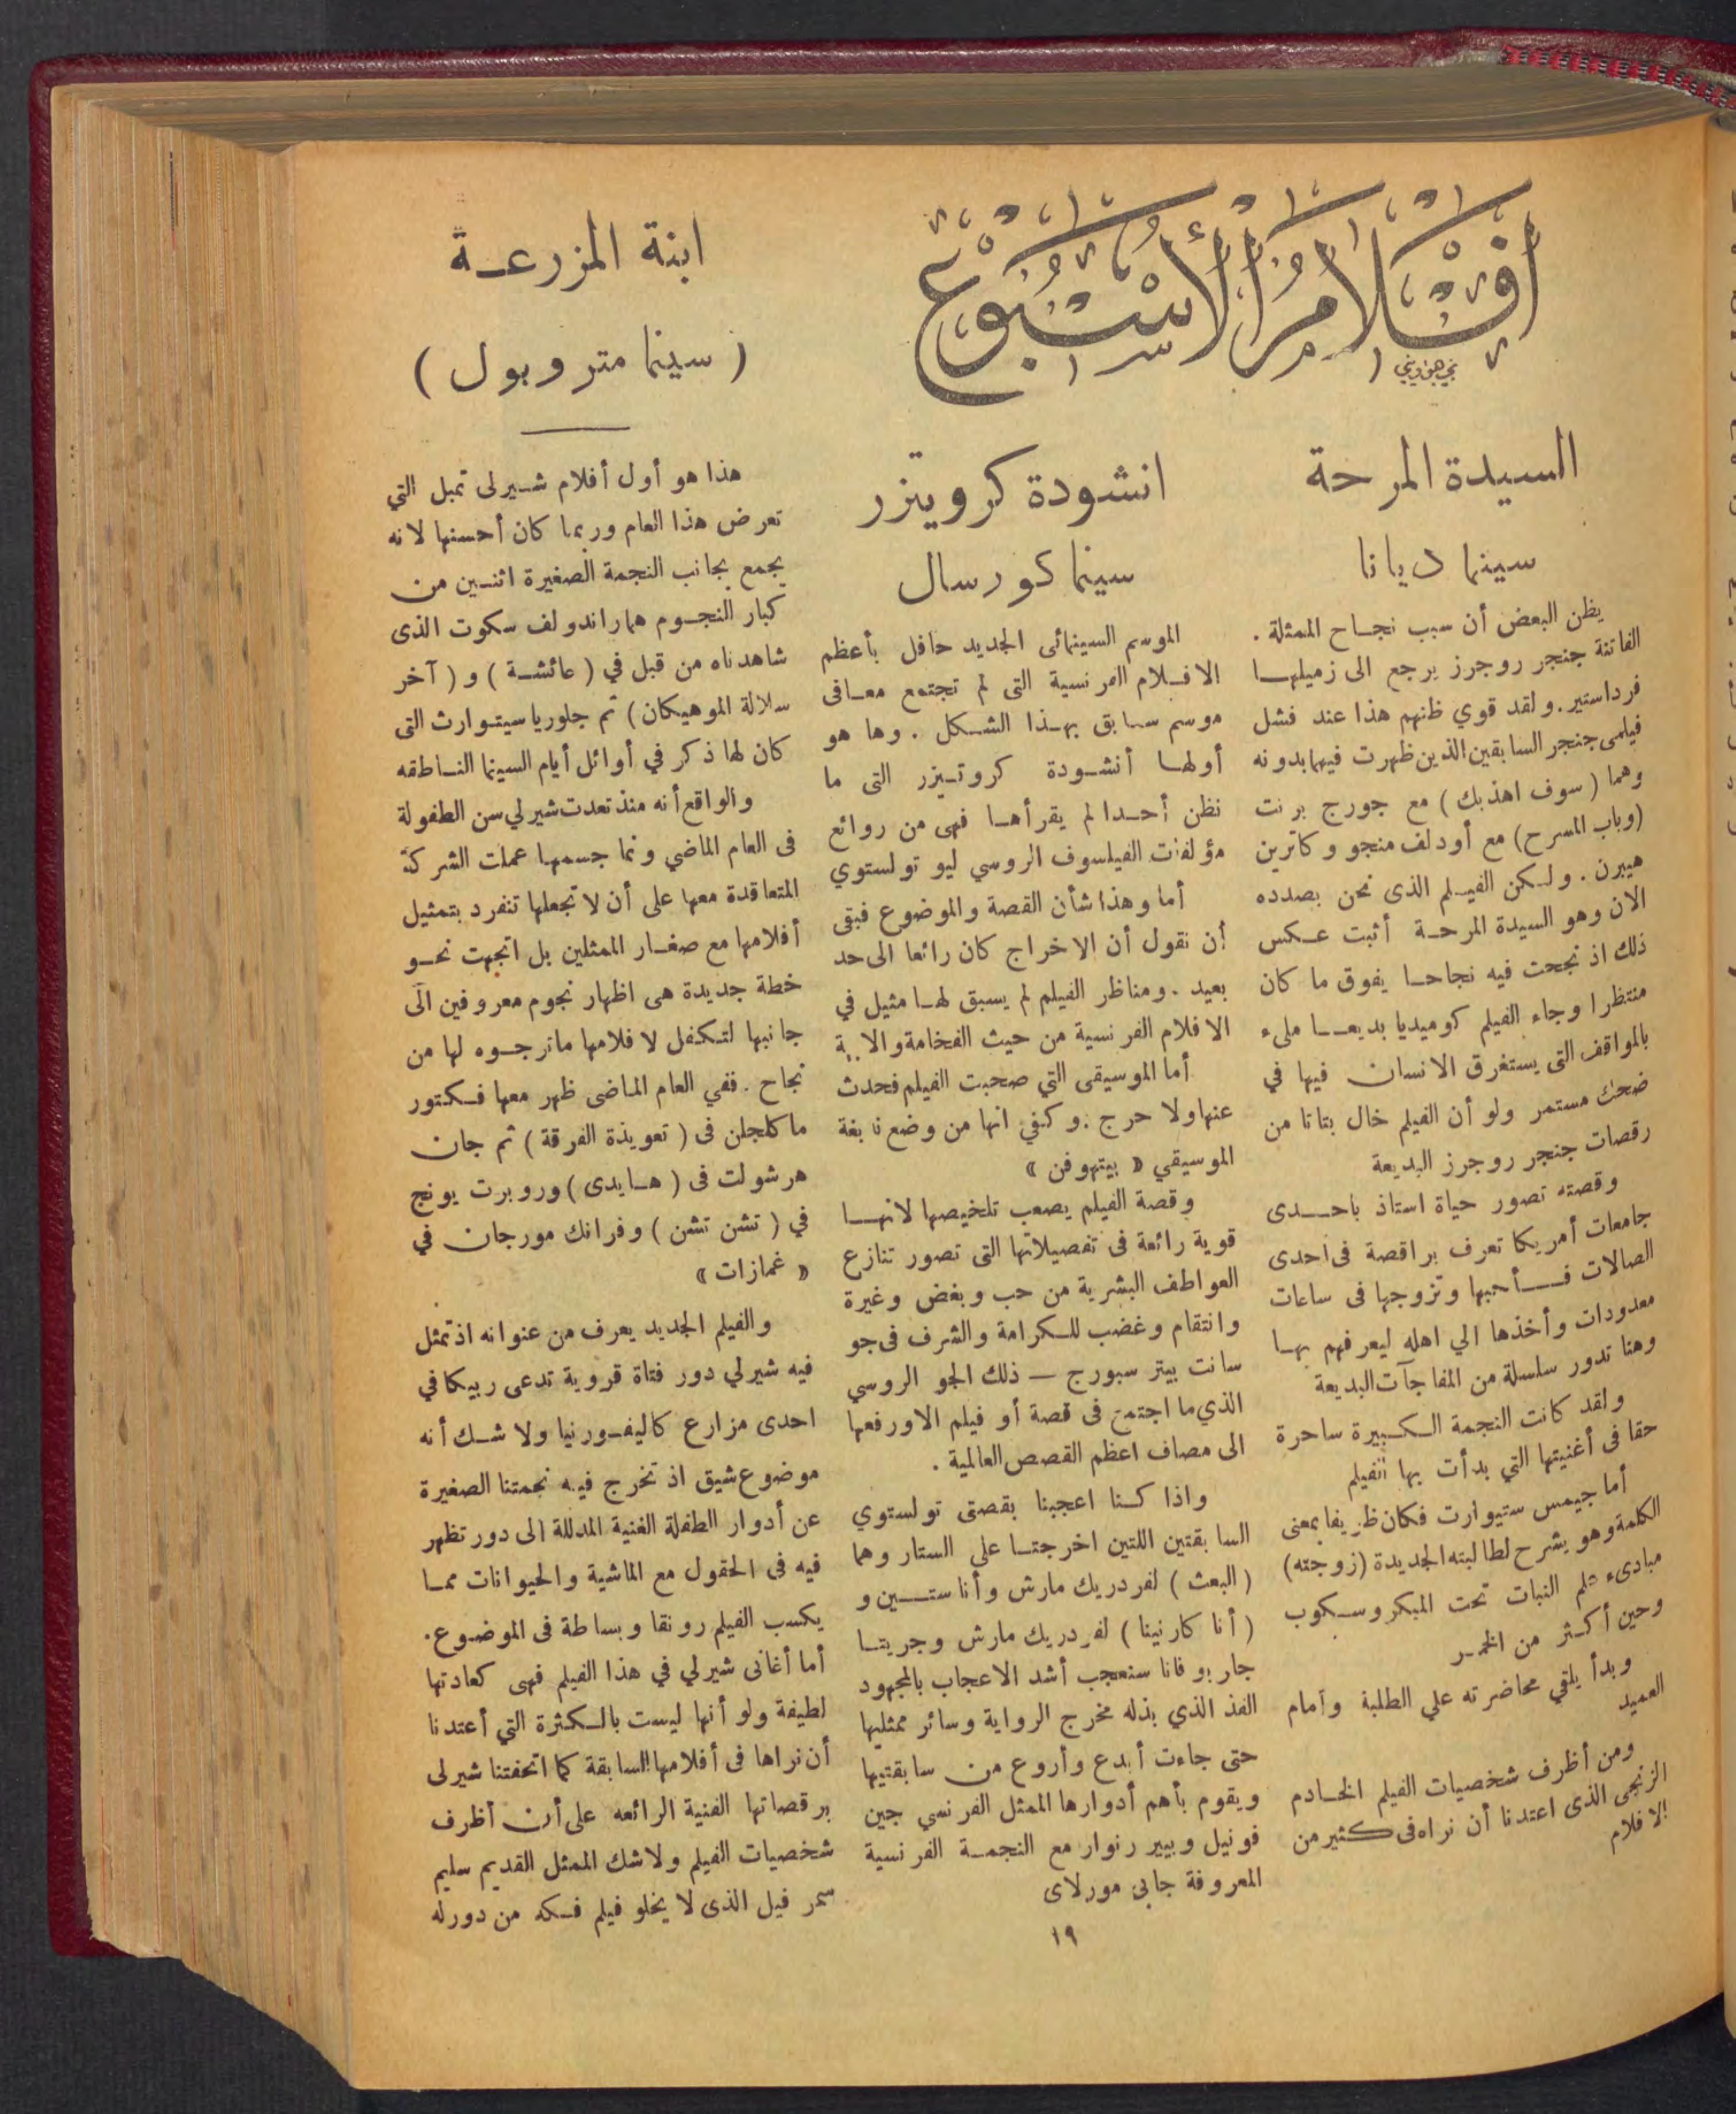 أفلام الأسبوع
السيدة المرحة
سينما ديانا
يظن البعض أن سبب نجاح الممثلة .
الفاتنة جنجر روجرز يرجع الى زميلها
فرداستير . ولقد قوي ظنهم هذا عند فشل
فيلمى جنجر السابقين الذين ظهرت فيهما بدونه
وهما ( سوف اهذبك ) مع جورج برنت
(وباب المسرح) مع أودلف منجو وكاترين
هيبرن . ولكن الفيلم الذى نحن بصدده
الان وهو السيدة المرحة أثبت عكس
ذلك اذ نجحت فيه نجاحا يفوق ما كان
منتظرا وجاء الفيلم كوميديا بديعا ملىء
بالمواقف التى يستغرق الانسان فيها في
ضحك مستمر ولو أن الفيلم خال بتاتا من
رقصات جنجر روجرز البديعة
وقصته تصور حياة استاذ باحدى
جامعات أمريكا تعرف براقصة فى احدى
الصالات فأحبها وتزوجها فى ساعات
معدودات وأخذها الي اهله ليعرفهم بها
وهنا تدور سلسلة من المفاجآت البديعة
ولقد كانت النجمة الكبيرة ساحرة
حقا فى أغنيتها التي بدأت بها الفيلم
أما جيمس ستيوارت فكان ظريفا بمعنى
الكلمة وهو يشرح لطالبته الجديدة (زوجته)
مبادىء علم النبات تحت الميكروسكوب
وحين أكثر من الخمر
وبدأ يلقي محاضرته علي الطلبة وأمام
العميد
ومن أظرف شخصيات الفيلم الخادم
الزنجى الذى اعتدنا أن نراه فى كثير من
الافلام
انشودة كرويتزر
سينما كورسال
الموسم السينمائى الجديد حافل بأعظم
الافلام الفرنسية التى لم تجتمع معا فى
موسم سابق بهذا الشكل . وها هو
أولها أنشودة كروتيزر التى ما
نظن أحدا لم يقرأها فهى من روائع
مؤلفات الفيلسوف الروسي ليو تولستوي
أما وهذا شأن القصة والموضوع فبقى
أن نقول أن الاخراج كان رائعا الى حد
بعيد . ومناظر الفيلم لم يسبق لها مثيل في
الافلام الفرنسية من حيث الفخامة
أما الموسيقى التي صحبت الفيلم فحدث
عنها ولا حرج . وكفي انها من وضع نابغة
الموسيقي « بيتهوفن »
وقصة الفيلم يصعب تلخيصها لانها
قوية رائعة فى تفصيلاتها التى تصور تنازع
العواطف البشرية من حب وبغض وغيرة
وانتقام وغضب للكرامة والشرف فى جو
سانت بيتر سبورج — ذلك الجو الروسي
الذي ما اجتمع فى قصة أو فيلم الاورفعها
الى مصاف اعظم القصص العالمية .
واذا كنا اعجبنا بقصتى تولستوي
السابقتين اللتين اخرجتا علي الستار وهما
( البعث ) لفردريك مارش وأنا ستين و
( أنا كارنينا ) لفردريك مارش وجريتا
جاربو فانا سنعجب أشد الاعجاب بالمجهود
الفذ الذي بذله مخرج الرواية وسائر ممثليها
حتى جاءت أبدع وأروع من سابقتيها
ويقوم بأهم أدوارها الممثل الفرنسي جين
فونيل وبيير رنوار مع النجمة الفرنسية
المعروفة جابى مورلاى
ابنة المزرعة
( سينما متروبول )
هذا هو أول أفلام شيرلى تمبل التي
تعرض هذا العام وربما كان أحسنها لانه
يجمع بجانب النجمة الصغيرة اثنين من
كبار النجوم هما راندولف سكوت الذى
شاهدناه من قبل في ( عائشة ) و ( آخر
سلالة الموهيكان ) ثم جلوريا سيتوارث التى
كان لها ذكر في أوائل أيام السينما الناطقه
والواقع أنه منذ تعدت شيرلي سن الطفولة
فى العام الماضي ونما جسمها عملت الشركة
المتعاقدة معها على أن لا تجعلها تنفرد بتمثيل
أفلامها مع صغار الممثلين بل اتجهت نحو
خطة جديدة هى اظهار نجوم معروفين الى
جانبها لتكفل لافلامها ماترجوه لها من
نجاح . ففي العام الماضى ظهر معها فكتور
ماكلجلن فى ( تعويذة الفرقة ) ثم جان
هرشولت فى ( هايدى ) وروبرت يونج
في ( تشن تشن ) وفرانك مورجان في
« غمازات »
والفيلم الجديد يعرف من عنوانه اذ تمثل
فيه شيرلي دور فتاة قروية تدعى ربيكا في
احدى مزارع كاليفورنيا ولا شك أنه
موضوع شيق اذ تخرج فيه نجمتنا الصغيرة
عن أدوار الطفلة الغنية المدللة الى دور تظهر
فيه فى الحقول مع الماشية والحيوانات مما
يكسب الفيلم رونقا وبساطة فى الموضوع .
أما أغانى شيرلي في هذا الفيلم فهى كعادتها
لطيفة ولو أنها ليست بالكثرة التي أعتدنا
أن نراها فى أفلامها السابقة كما اتحفتنا شيرلى
برقصاتها الفنية الرائعه على أن أظرف
شخصيات الفيلم ولا شك الممثل القديم سليم
سمرفيل الذى لا يخلو فيلم فكه من دور له
١٩